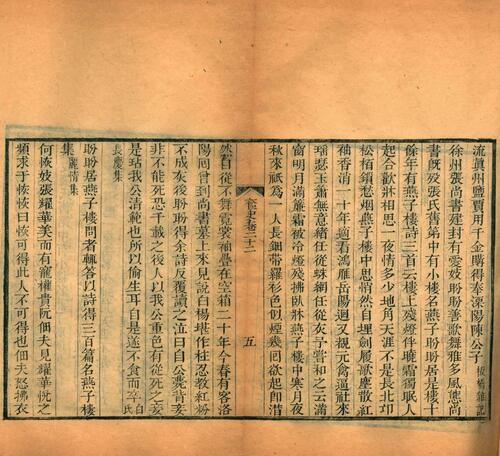 流眞州鹽賈用千金購得奉溧陽陳公子板橋雜記
徐州張尚書建封有愛妓盼盼善歌舞雅多風態尚
書旣歿張氏舊第中有小樓名燕子盼盼居是樓十
餘年有燕子樓詩三首云樓上殘燈伴曉霜獨眠人
起合歡牀相思一夜情多少地角天涯不是長北邙
松栢鎖愁烟燕子樓中思悄然自埋劍履歌塵散紅
袖香消一十年適看鴻雁岳陽迴又覩元禽逼社來
瑶瑟玉簫無意緒任從蛛網任從灰予嘗和之云滿
窗明月滿簾霜被冷燈殘拂臥牀燕子樓中寒月夜
秋來祇爲一人長鈿帶羅衫色似煙幾回欲起卽潸
然自從不舞霓裳袖疊在空箱二十年今春有客洛
陽回曾到尚書墓上來見說白楊堪作柱忍教紅粉
不成灰後盼盼得余詩反覆讀之泣曰自公薨背妾
非不能死恐千載之後人以我公重色有從死之妾
是玷我公淸範也所以偷生耳自是遂不食而卒白氏
長慶集
盼盼居燕子樓問者輒答以詩得三百篇名燕子樓
集麗情集
何恢妓張耀華美而有寵權貴阮佃夫見耀華悅之
頻求于恢恢曰恢可得此人不可得也佃夫怒拂衣
卷三十二
五